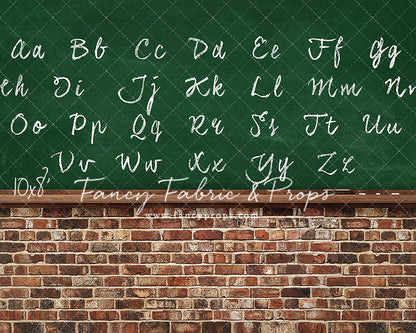 Aa Bb Cc Dd Ee Ff Gg
Hh Ii Jj Kk Ll Mm Nn
Oo Pp Qq Rr Ss Tt Uu
Vv Ww Xx Yy Zz
10x8
Fancy Fabric & Props
www.fancyprops.com